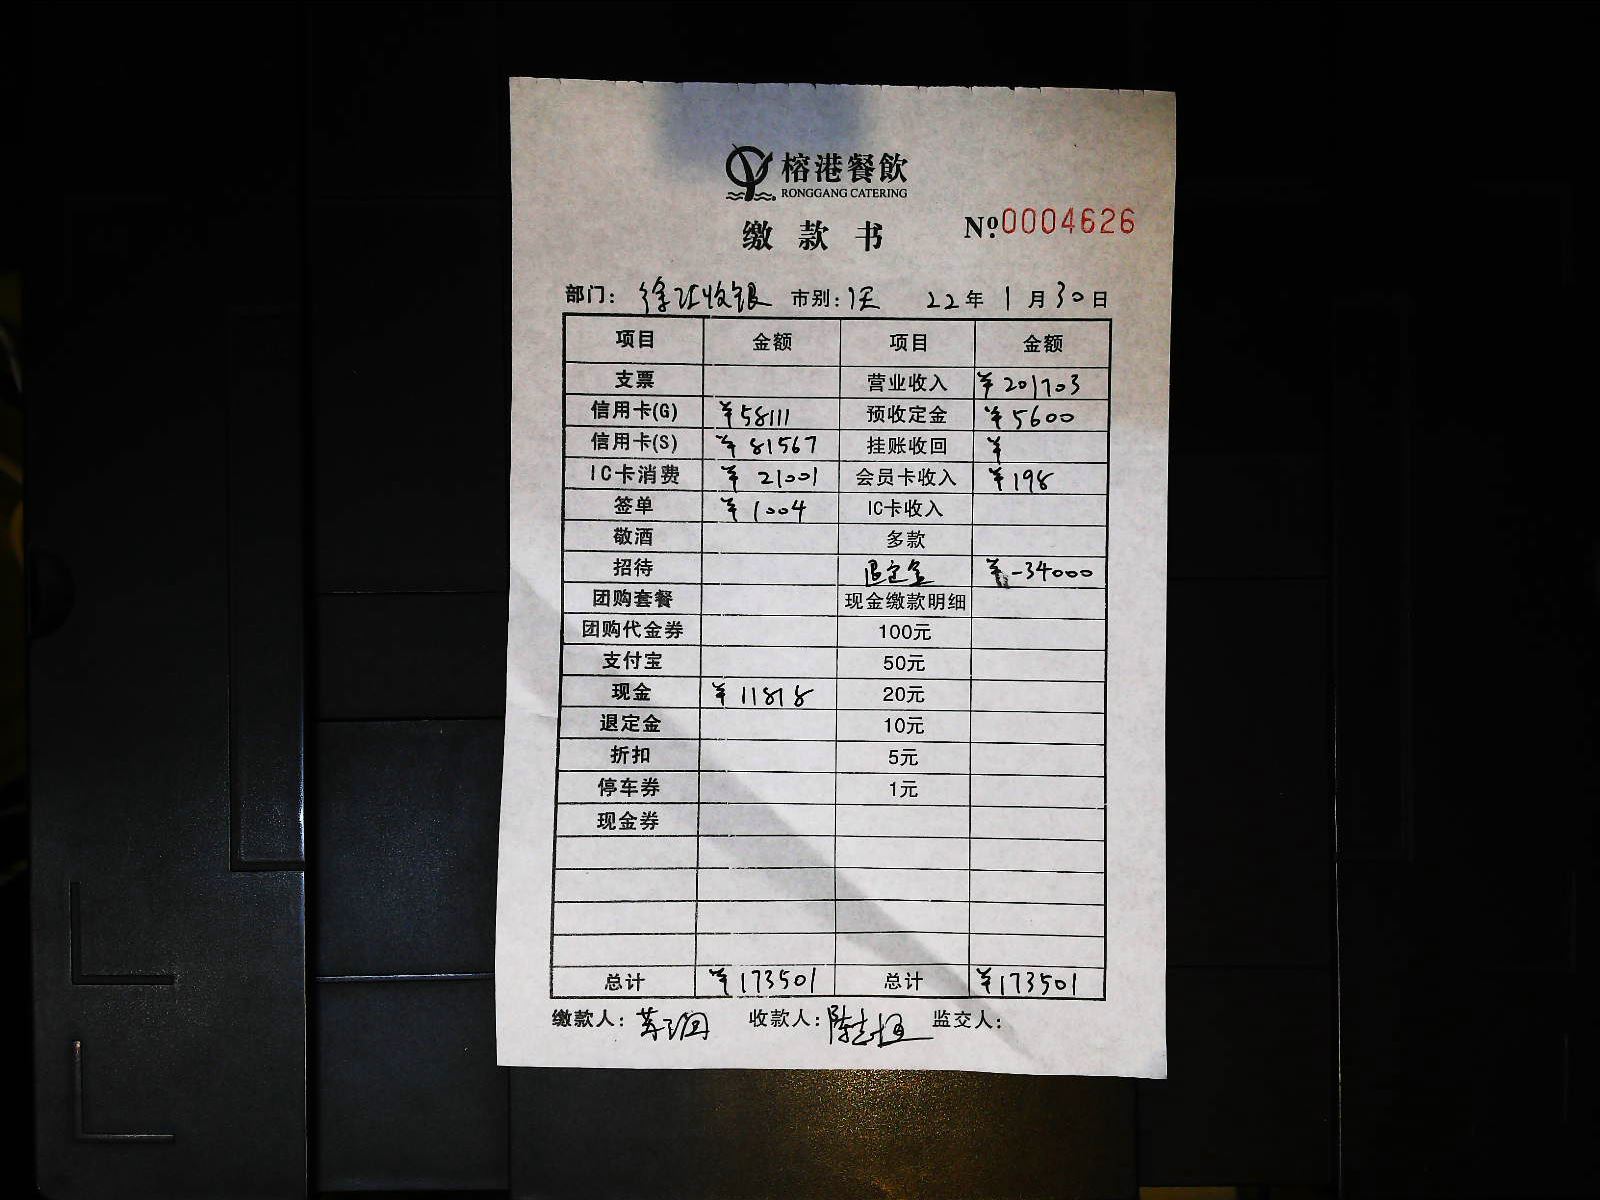 榕港餐飲
RONGGANG CATERING
缴款书 Nº:0004626
部门: 徐汇收银 市别: 1天 22年1月30日
项目 金额 项目 金额
支票 营业收入 ¥201703
信用卡(G) ¥58111 预收定金 ¥5600
信用卡(S) ¥81567 挂账收回 ¥
IC卡消费 ¥21001 会员卡收入 ¥198
签单 ¥1004 IC卡收入
敬酒 多款
招待 退定金 ¥-34000
团购套餐 现金缴款明细
团购代金券 100元
支付宝 50元
现金 ¥11818 20元
退定金 10元
折扣 5元
停车券 1元
现金券
总计 ¥173501 总计 ¥173501
缴款人: 收款人: 监交人: